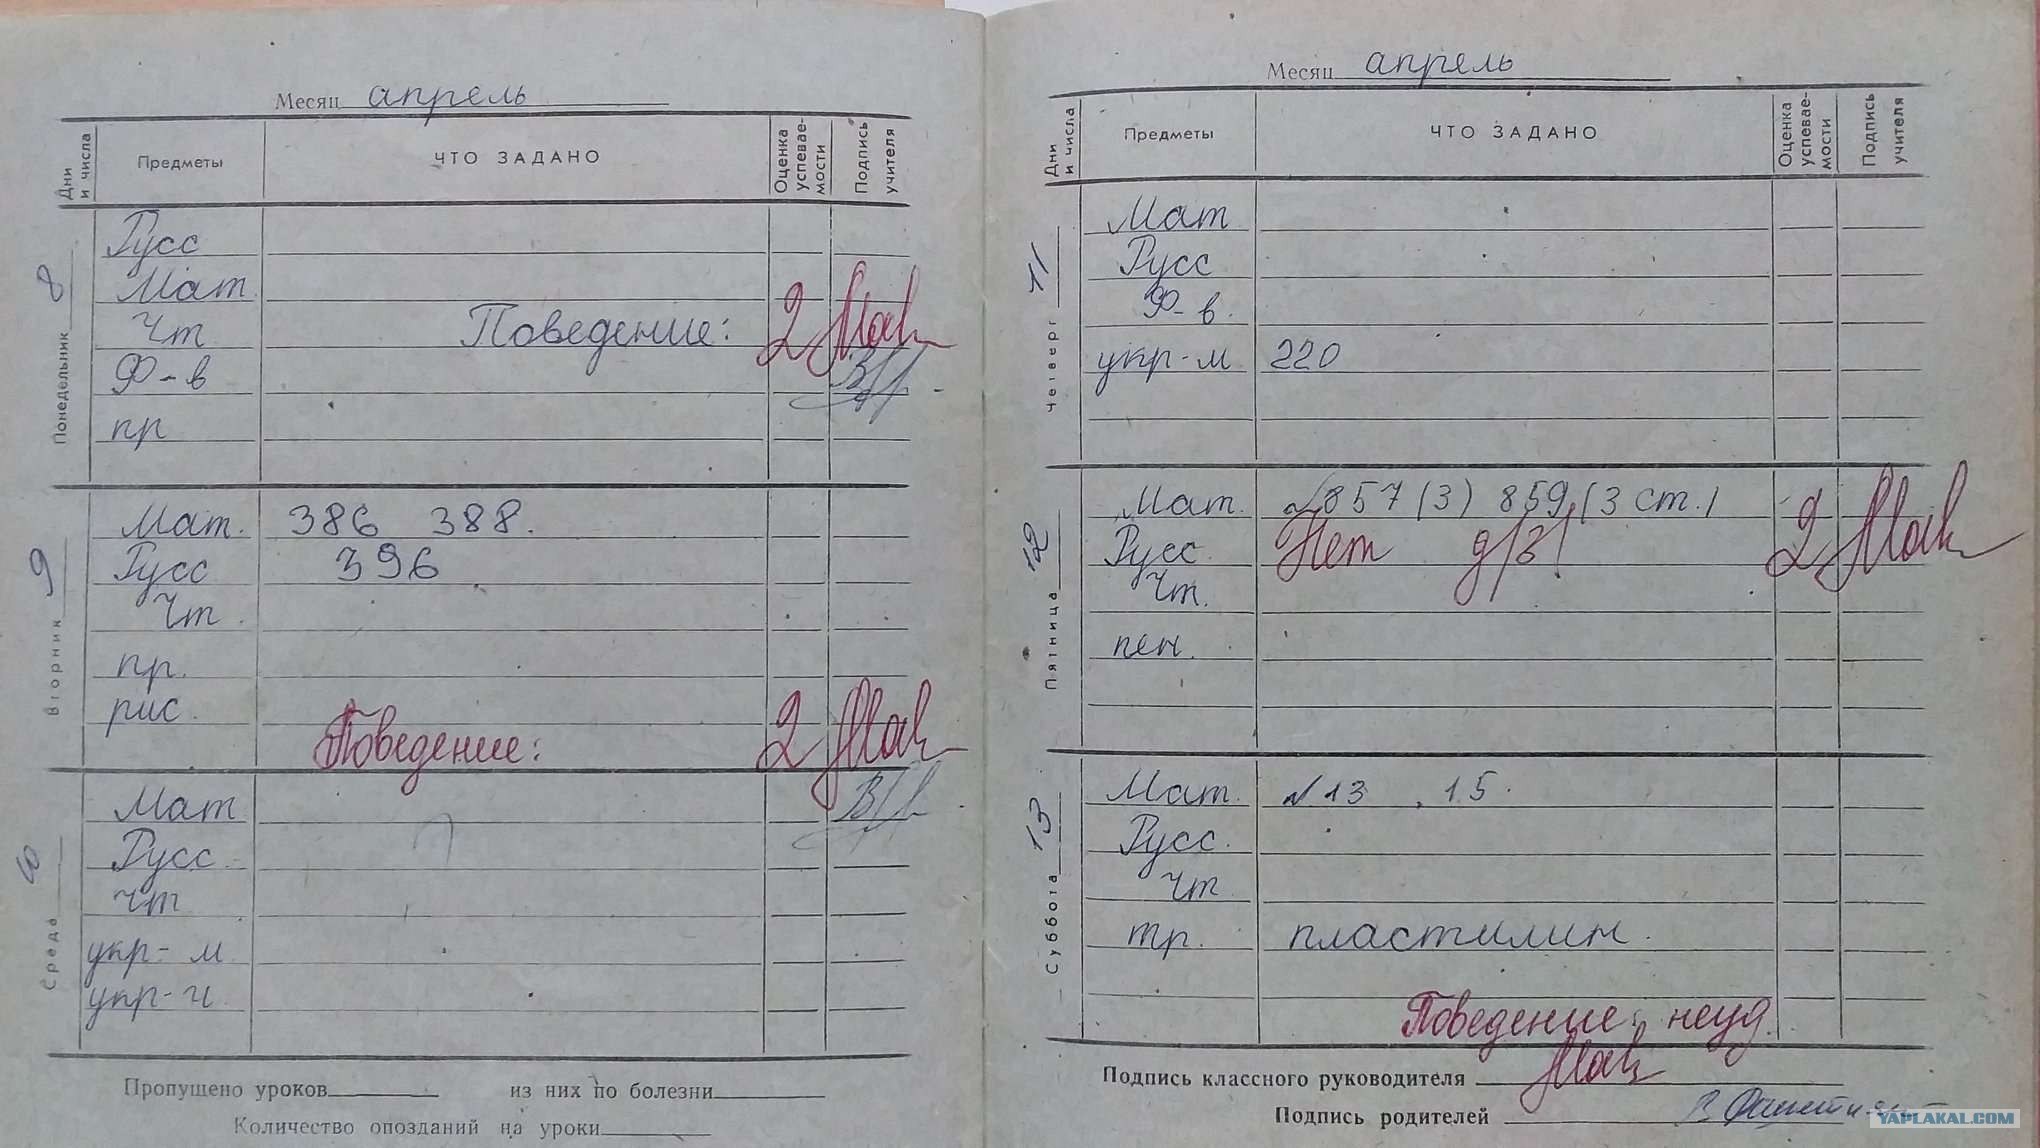 Месяц апрель
Дни и числа Предметы ЧТО ЗАДАНО Оценка успевае-мости Подпись учителя
Понедельник 8
Русс
Мат.
Чт Поведение: 2
Ф-в
пр
Вторник 9
Мат. 386 388.
Русс 396
Чт.
пр.
рис.
Поведение: 2
Среда 10
Мат
Русс.
Чт
укр-м
укр-ч
Пропущено уроков из них по болезни
Количество опозданий на уроки
Месяц апрель
Дни и числа Предметы ЧТО ЗАДАНО Оценка успевае-мости Подпись учителя
Четверг 11
Мат
Русс
Ф-в.
укр-м 220
Пятница 12
Мат. №857 (3) 859 (3 ст.)
Русс. Нет д/з! 2
Чт.
пен.
Суббота 13
Мат. №13 15.
Русс.
Чт
тр. пластилин.
Поведение: неуд.
Подпись классного руководителя
Подпись родителей
YAPLAKAL.COM